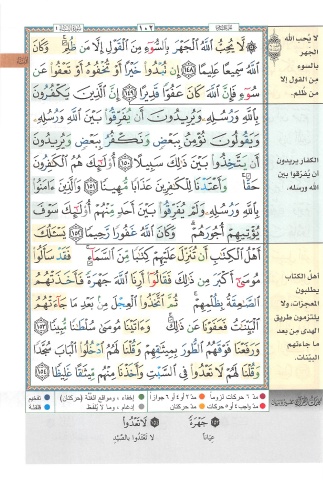 ١٠٢
لَّا يُحِبُّ اللَّهُ الْجَهْرَ بِالسُّوءِ مِنَ الْقَوْلِ إِلَّا مَن ظُلِمَ وَكَانَ
اللَّهُ سَمِيعًا عَلِيمًا ١٤٨ إِن تُبْدُوا خَيْرًا أَوْ تُخْفُوهُ أَوْ تَعْفُوا عَن
سُوءٍ فَإِنَّ اللَّهَ كَانَ عَفُوًّا قَدِيرًا ١٤٩ إِنَّ الَّذِينَ يَكْفُرُونَ
بِاللَّهِ وَرُسُلِهِ وَيُرِيدُونَ أَن يُفَرِّقُوا بَيْنَ اللَّهِ وَرُسُلِهِ
وَيَقُولُونَ نُؤْمِنُ بِبَعْضٍ وَنَكْفُرُ بِبَعْضٍ وَيُرِيدُونَ
أَن يَتَّخِذُوا بَيْنَ ذَٰلِكَ سَبِيلًا ١٥٠ أُولَٰئِكَ هُمُ الْكَافِرُونَ
حَقًّا وَأَعْتَدْنَا لِلْكَافِرِينَ عَذَابًا مُّهِينًا ١٥١ وَالَّذِينَ آمَنُوا
بِاللَّهِ وَرُسُلِهِ وَلَمْ يُفَرِّقُوا بَيْنَ أَحَدٍ مِّنْهُمْ أُولَٰئِكَ سَوْفَ
يُؤْتِيهِمْ أُجُورَهُمْ وَكَانَ اللَّهُ غَفُورًا رَّحِيمًا ١٥٢ يَسْأَلُكَ
أَهْلُ الْكِتَابِ أَن تُنَزِّلَ عَلَيْهِمْ كِتَابًا مِّنَ السَّمَاءِ فَقَدْ سَأَلُوا
مُوسَىٰ أَكْبَرَ مِن ذَٰلِكَ فَقَالُوا أَرِنَا اللَّهَ جَهْرَةً فَأَخَذَتْهُمُ
الصَّاعِقَةُ بِظُلْمِهِمْ ثُمَّ اتَّخَذُوا الْعِجْلَ مِن بَعْدِ مَا جَاءَتْهُمُ
الْبَيِّنَاتُ فَعَفَوْنَا عَن ذَٰلِكَ وَآتَيْنَا مُوسَىٰ سُلْطَانًا مُّبِينًا ١٥٣
وَرَفَعْنَا فَوْقَهُمُ الطُّورَ بِمِيثَاقِهِمْ وَقُلْنَا لَهُمُ ادْخُلُوا الْبَابَ سُجَّدًا
وَقُلْنَا لَهُمْ لَا تَعْدُوا فِي السَّبْتِ وَأَخَذْنَا مِنْهُم مِّيثَاقًا غَلِيظًا ١٥٤
لا يُحب الله
الجهر
بالسوء
من القول إلا
من ظلم.
الكفار يريدون
أن يُفرقوا بين
الله ورسله.
أهل الكتاب
يطلبون
المعجزات، ولا
يلتزمون طريق
الهدى من بعد
ما جاءتهم
البينات.
مدّ ٦ حركات لزوماً مدّ ٢ أو ٤ أو ٦ جوازاً إخفاء، ومواقع الغُنَّة (حركتان) تفخيم
مدّ واجب ٤ أو ٥ حركات مدّ حركتان إدغام، وما لا يُلفَظ قلقلة
جَهْرَةً
عِيَاناً
لَا تَعْدُوا
لَا تَعْتَدُوا بِالصَّيْدِ